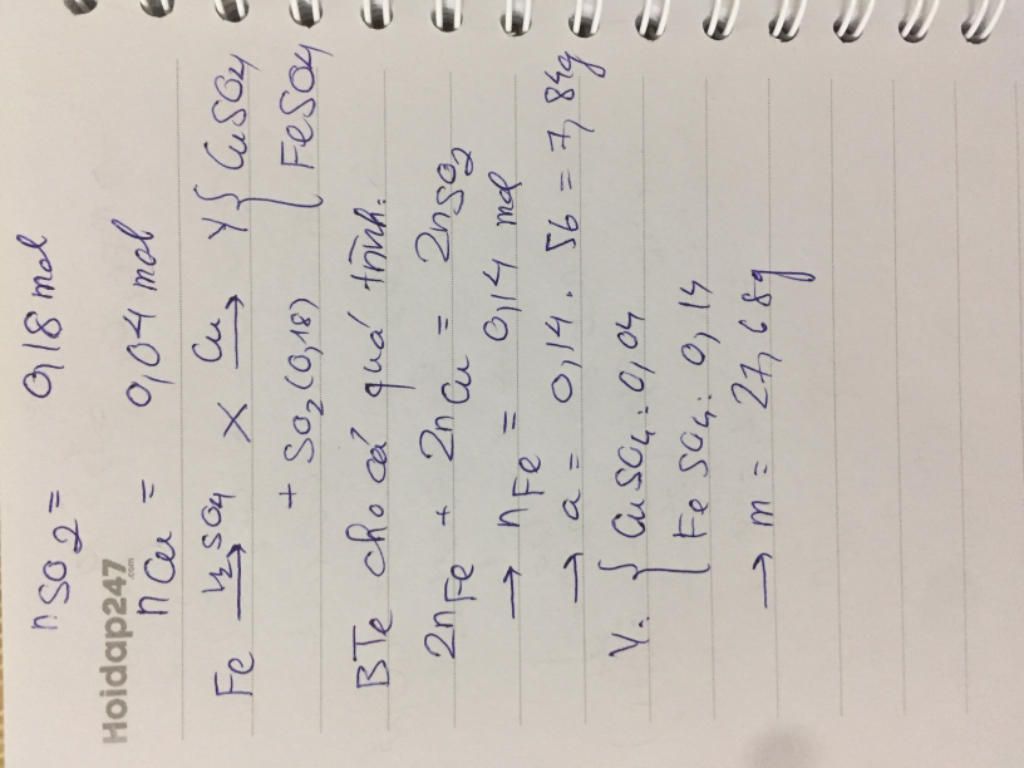 nSO2 = 0,18 mol
Hoidap247
.com
nCu = 0,04 mol
Fe H2SO4 → X Cu → Y { CuSO4
+ SO2 (0,18) FeSO4
BTe cho cả quá trình:
2nFe + 2nCu = 2nSO2
→ nFe = 0,14 mol
→ a = 0,14 . 56 = 7,84g
Y: { CuSO4: 0,04
FeSO4: 0,14
→ m = 27,68g